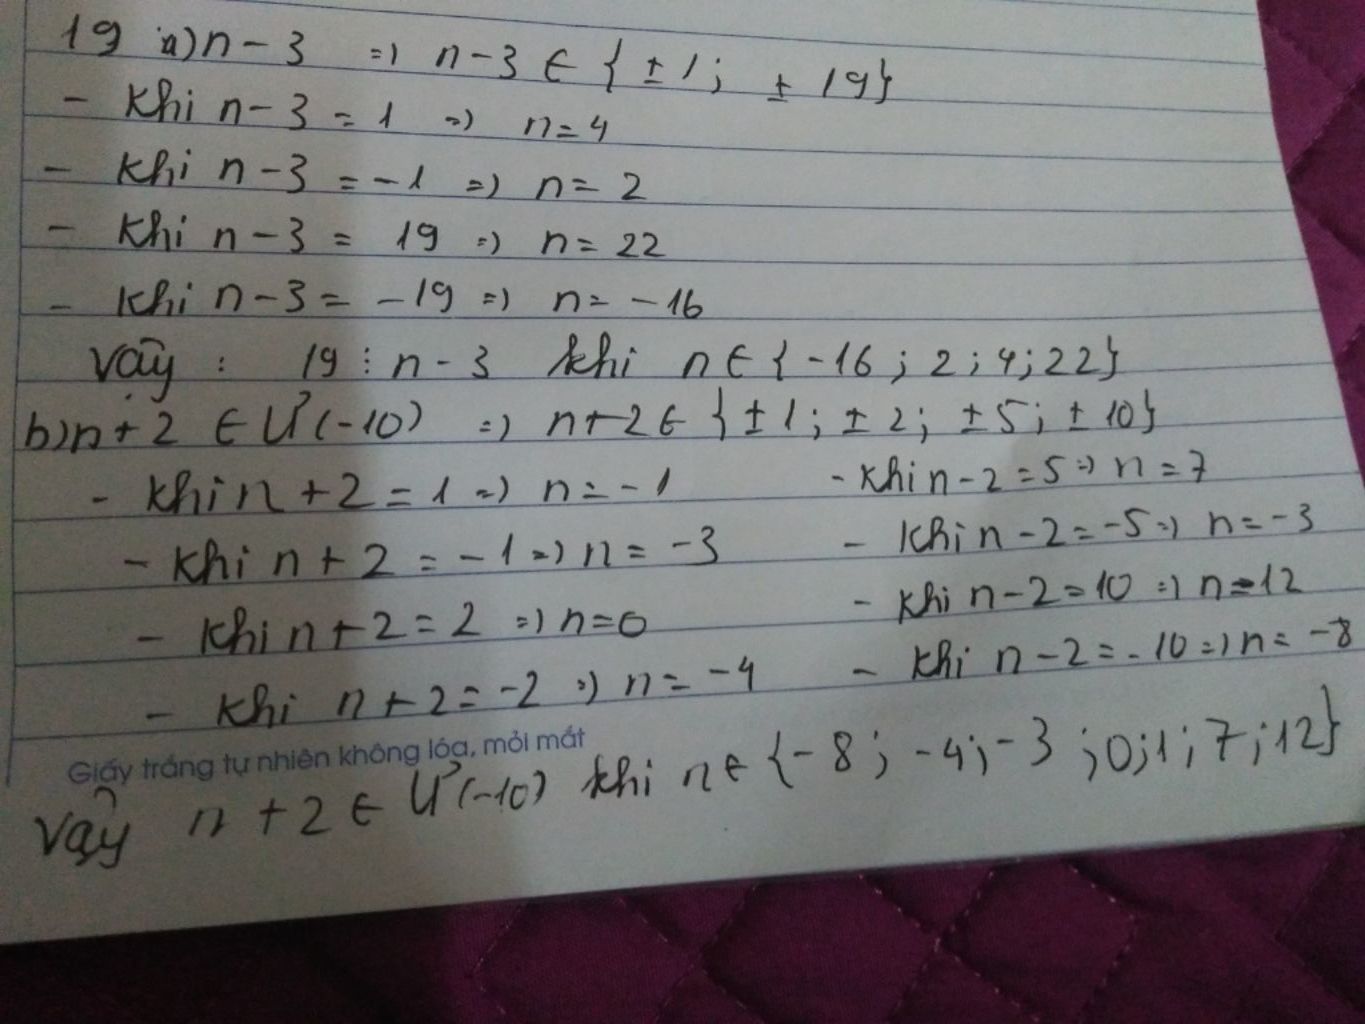 19 a) n - 3 => n - 3 ∈ { ± 1 ; ± 19 }
- Khi n - 3 = 1 => n = 4
- Khi n - 3 = -1 => n = 2
- Khi n - 3 = 19 => n = 22
- Khi n - 3 = -19 => n = -16
Vậy : 19 ⋮ n - 3 khi n ∈ { -16 ; 2 ; 4 ; 22 }
b) n + 2 ∈ Ư (-10) => n + 2 ∈ { ± 1 ; ± 2 ; ± 5 ; ± 10 }
- Khi n + 2 = 1 => n = -1
- Khi n + 2 = -1 => n = -3
- Khi n + 2 = 2 => n = 0
- Khi n + 2 = -2 => n = -4
- Khi n - 2 = 5 => n = 7
- Khi n - 2 = -5 => n = -3
- Khi n - 2 = 10 => n = 12
- Khi n - 2 = -10 => n = -8
Giấy trắng tự nhiên không lóa, mỏi mắt
Vậy n + 2 ∈ Ư (-10) khi n ∈ { -8 ; -4 ; -3 ; 0 ; 1 ; 7 ; 12 }